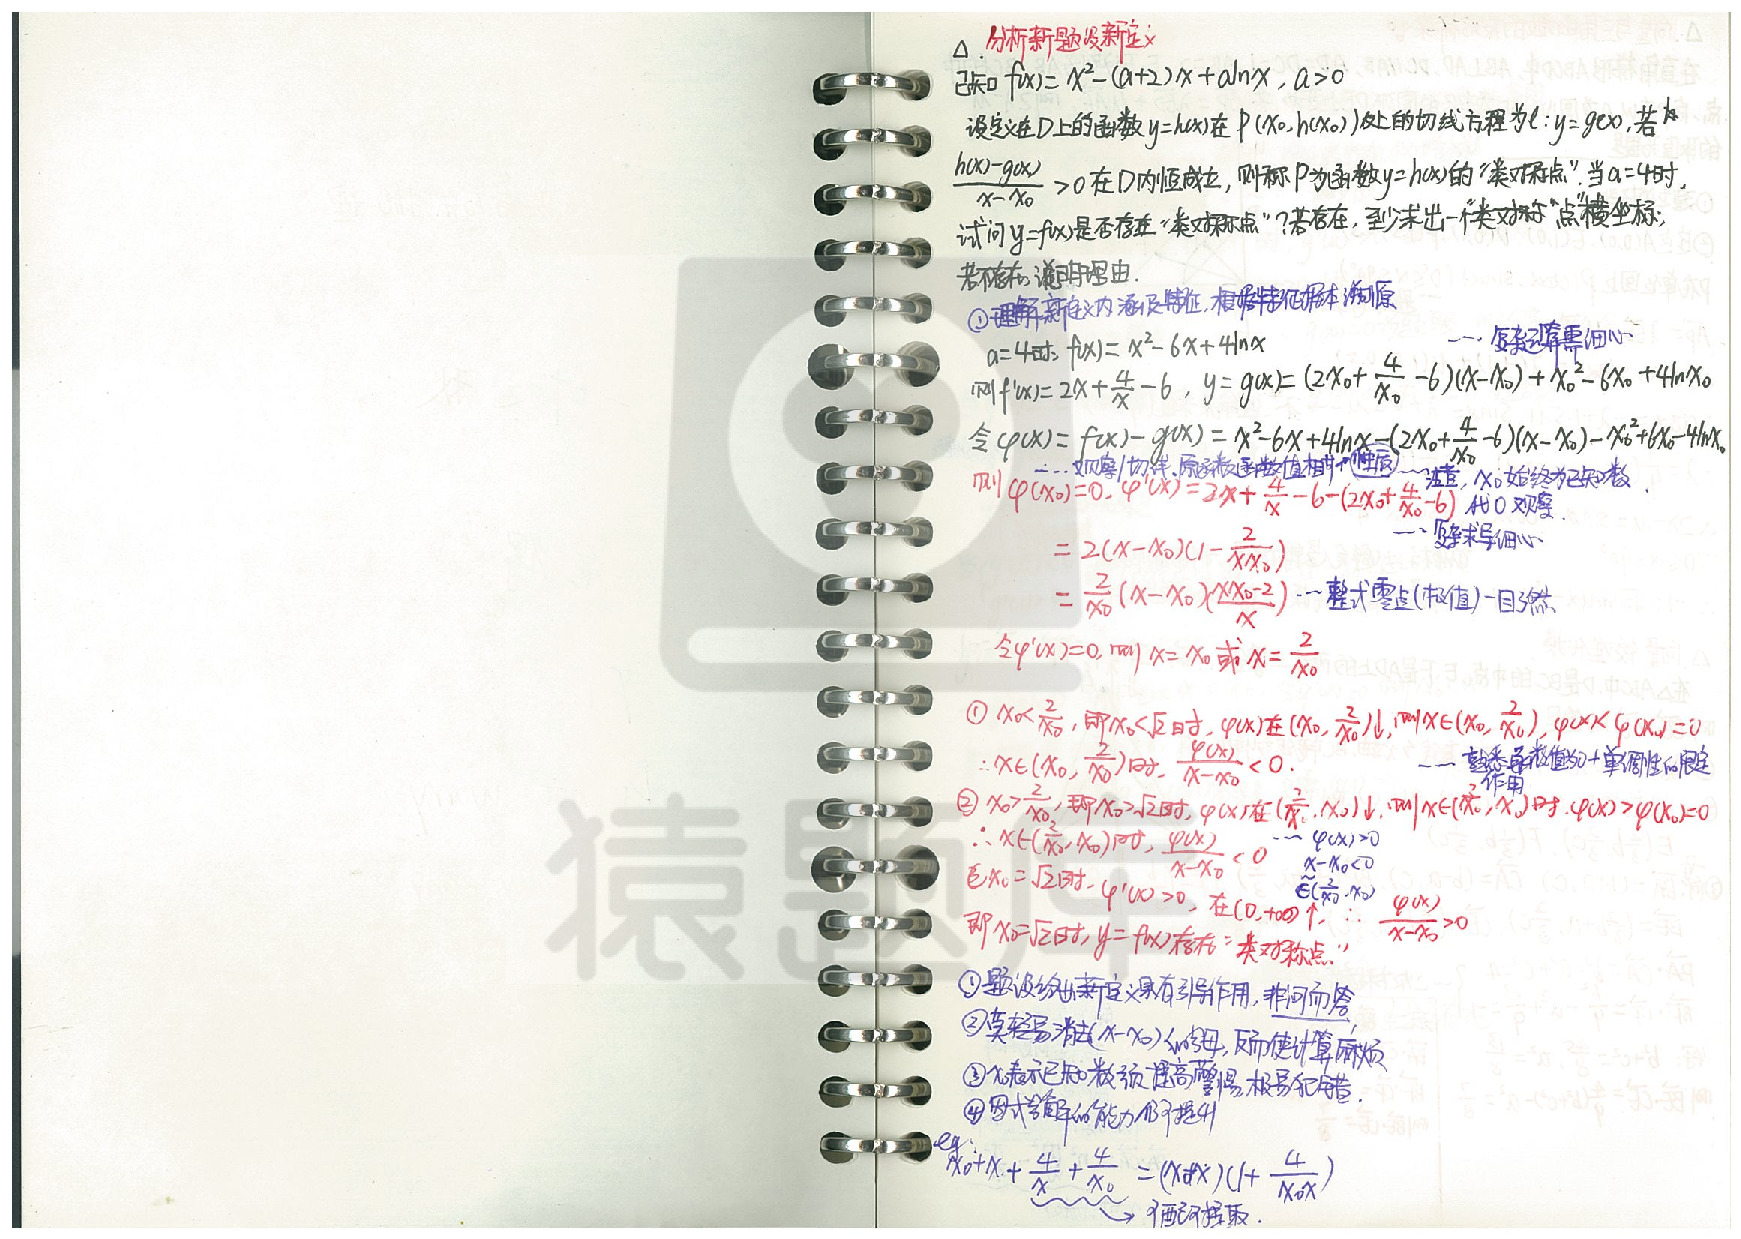 △. 分析新题设新定义
已知 f(x)=x²-(a+2)x+alnx, a>0
设定义在D上的函数y=h(x)在P(x₀,h(x₀))处上的切线方程为l:y=g(x),若
(h(x)-g(x))/(x-x₀) >0在D内恒成立,则称P为函数y=h(x)的“类对称点”.当a=4时,
试问y=f(x)是否存在“类对称点”?若存在,至少求出一个“类对称”点横坐标;
若不存在,说明理由.
①理解新定义内涵及特征,根据特征根本溯源
a=4时, f(x)=x²-6x+4lnx
则f'(x)=2x+4/x-6, y=g(x)=(2x₀+4/x₀-6)(x-x₀)+x₀²-6x₀+4lnx₀
令φ(x)=f(x)-g(x)=x²-6x+4lnx-(2x₀+4/x₀-6)(x-x₀)-x₀²+6x₀-4lnx₀
注意,x₀始终为已知数
则φ(x₀)=0, φ'(x)=2x+4/x-6-(2x₀+4/x₀-6) 代0观察.
求导细心
=2(x-x₀)(1-2/(xx₀))
=2/x₀(x-x₀)((xx₀-2)/x) ---整式零点(极值)一目了然
令φ'(x)=0,则x=x₀或x=2/x₀
①x₀<2/x₀,即x₀<√2时,φ(x)在(x₀,2/x₀)↓,则x∈(x₀,2/x₀),φ(x)<φ(x₀)=0
∴x∈(x₀,2/x₀)时,φ(x)/(x-x₀)<0.
作用
②x₀>2/x₀,即x₀>√2时,φ(x)在(2/x₀,x₀)↓,则x∈(2/x₀,x₀)时.φ(x)>φ(x₀)=0
∴x∈(2/x₀,x₀)时,φ(x)/(x-x₀)<0 ---φ(x)>0
x-x₀<0
∈(2/x₀,x₀)
x₀=√2时,φ'(x)>0,在(0,+∞)↑,∴φ(x)/(x-x₀)>0
即x₀=√2时,y=f(x)存在“类对称点”
①题设给出新定义具有引导作用,非问而答
②莫轻易消去(x-x₀)分母,反而使计算麻烦
③x₀表示已知数须提高警惕,极易犯错.
④因式分解的能力仍可提升
eg:
x₀+x+4/x+4/x₀=(x₀+x)(1+4/(x₀x))
可配可提取.
猿题库